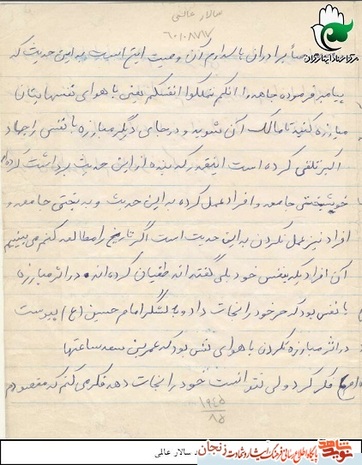 سالار عالمی
مرکز اسناد ایثارگران
برادران دارم آن وصیت اینست به این حدیث که
پیامبر فرموده جاهدوا انفسکم تملکوا انفسکم یعنی با هوای نفسهایتان
مبارزه کنید تا مالک آن شوید و در جای دیگر مبارزه با نفس را جهاد
اکبر تلقی کرده است اینقدر که بنده از این حدیث برداشت کرده‌ام
خوشبختی جامعه و افراد عمل کرده به این حدیث و بدبختی جامعه و
افراد نیز عمل نکردن به این حدیث است اگر تاریخ را مطالعه کنم می‌بینیم
آن افراد یکه بنفس خود بلی گفته‌اند طغیان کرده‌اند و در اثر مبارزه
با نفس بود که حر خود را نجات داد و به لشگر امام حسین (ع) پیوست
در اثر مبارزه نکردن با هوای نفس بود که عمر بن سعد ساعتها
فکر کرد ولی نتوانست خود را نجات دهد فکر می‌کنم که مقصودم
۱۹۴۵
۸۵
نوید شاهد
پایگاه اطلاع رسانی فرهنگ ایثار و شهادت زنجان - سالار عالمی